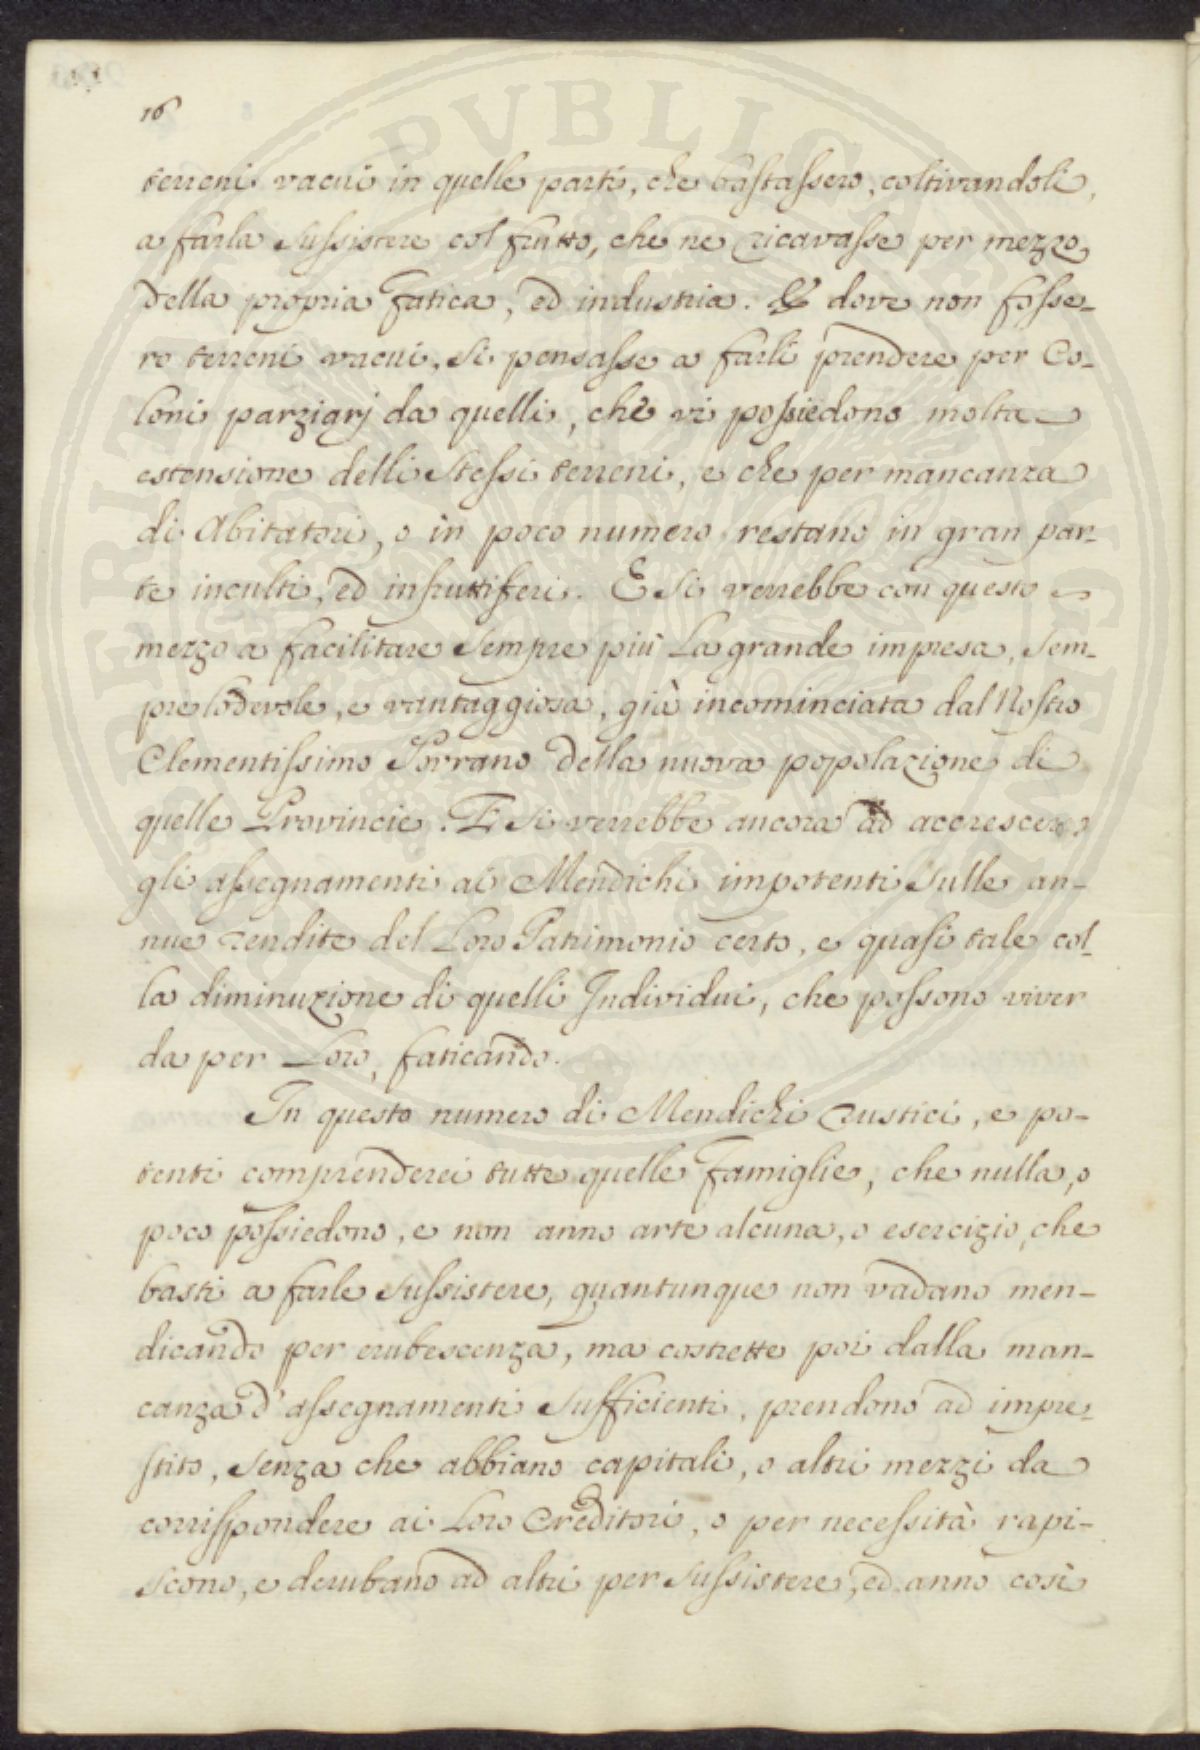 16
terreni vacui in quelle parti, che bastassero, coltivandoli,
a farla sussistere col frutto, che ne ricavasse per mezzo
della propria fatica, ed industria. E dove non fosse-
ro terreni vacui, si pensasse a farli prendere per Co-
loni parziarj da quelli, che vi possiedono molta
estensione delli stessi terreni, e che per mancanza
di Abitatori, o in poco numero restano in gran par-
te inculti, ed infruttiferi. E si verrebbe con questo
mezzo a facilitare sempre più la grande impresa, sem-
pre lodevole, e vantaggiosa, già incominciata dal Nostro
Clementissimo Sovrano della nuova popolazione di
quelle Provincie. E si verrebbe ancora ad accrescere
gli assegnamenti ai Mendichi impotenti sulle an-
nue rendite del Loro Patrimonio certo, e quasi tale col-
la diminuzione di quelli Individui, che possono viver
da per Loro, faticando.
In questo numero di Mendichi rustici, e po-
tenti comprenderei tutte quelle Famiglie, che nulla, o
poco possiedono, e non anno arte alcuna, o esercizio, che
basti a farle sussistere, quantunque non vadano men-
dicando per erubescenza, ma costrette poi dalla man-
canza d'assegnamenti sufficienti, prendono ad impre-
stito, senza che abbiano capitali, o altri mezzi da
corrispondere ai Loro Creditori, o per necessità rapi-
scono, e derubano ad altri per sussistere, ed anno così